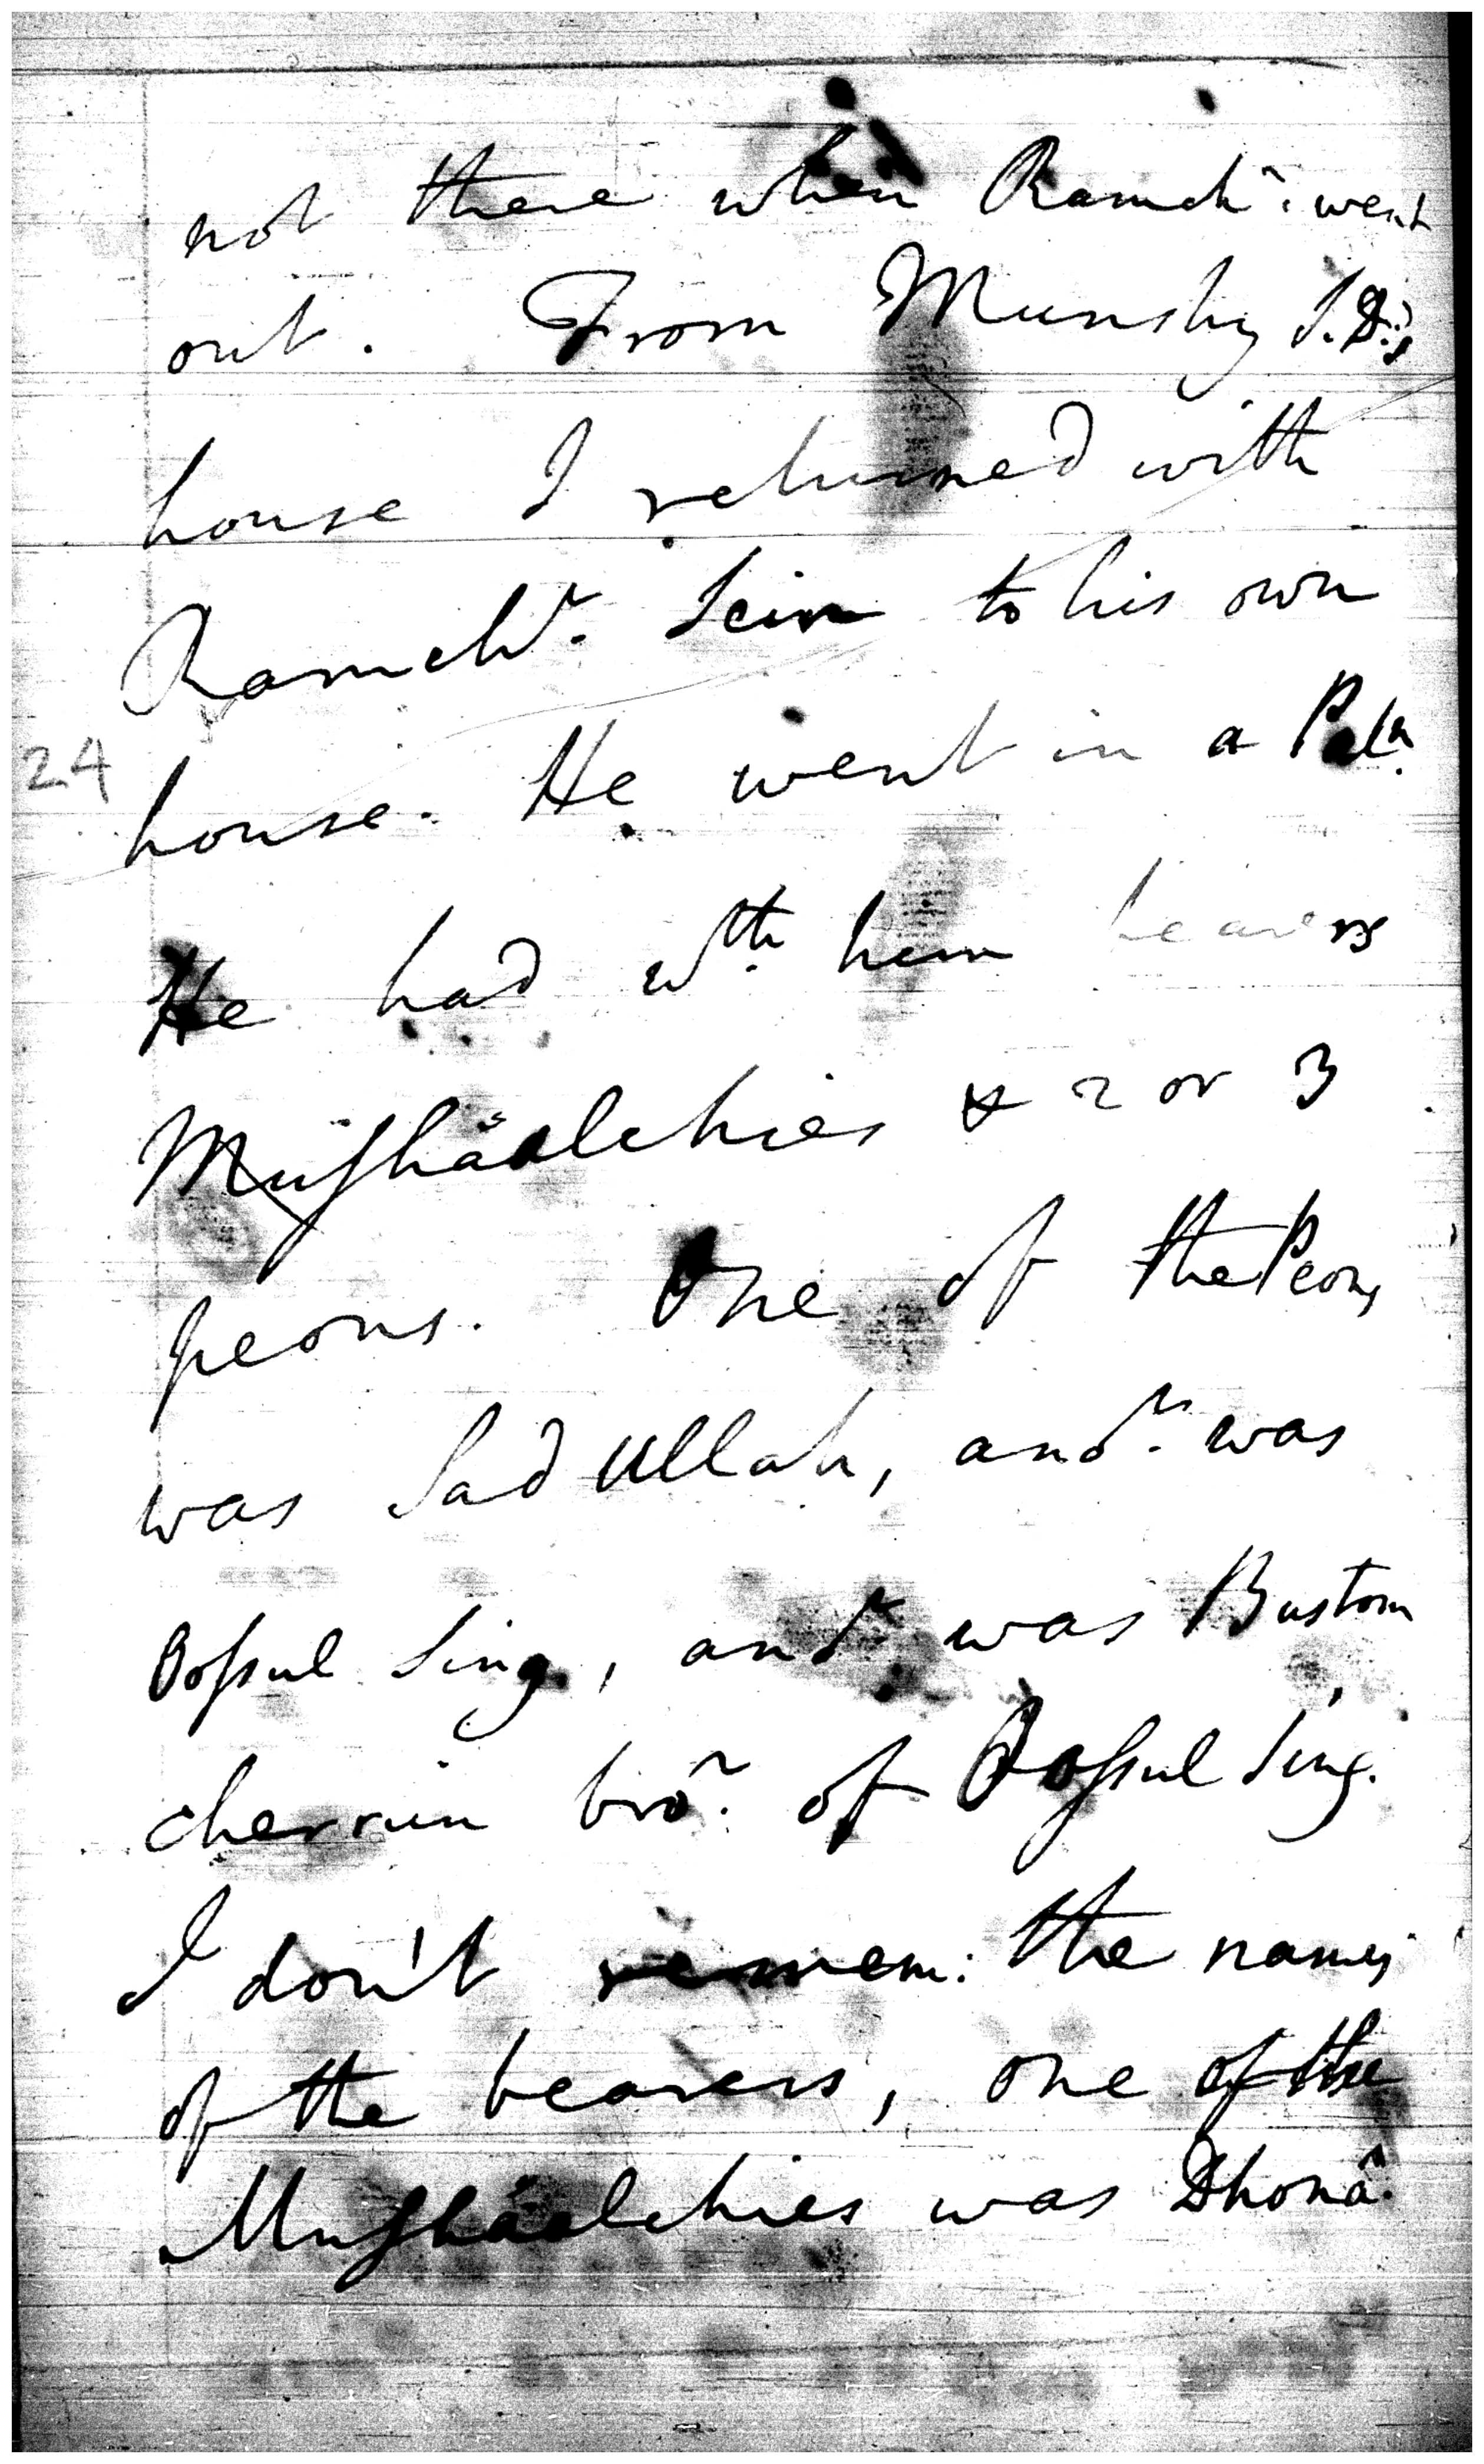 not there when Ramch<sup>r</sup>. went
out. From Munshy S. D's
house I returned with
Ramch<sup>r</sup>. Sein to his own
24
house. He went in a Pal<sup>n</sup>.
He had w<sup>th</sup>. him bearers
Mushäalchies & 2 or 3
peons. One of the Peons
was Sad Ullah, and<sup>r</sup>. was
Bossul Sing, and<sup>r</sup>. was Bustom
cherrun bro<sup>r</sup>. of Bossul Sing.
I don't remem: the names
of the bearers, one of the
Mushäalchies was Dhonä.